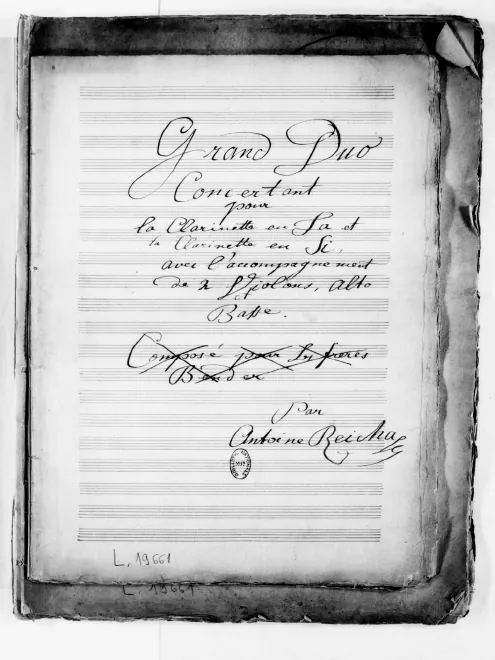 Grand Duo
Concertant
pour
la Clarinette en La et
la Clarinette en Si,
avec l'accompagnement
de 2 Violons, Alto
et
Basse.
Composé pour les freres
Bender
Par
Antoine Reicha
L, 19661
L 19661